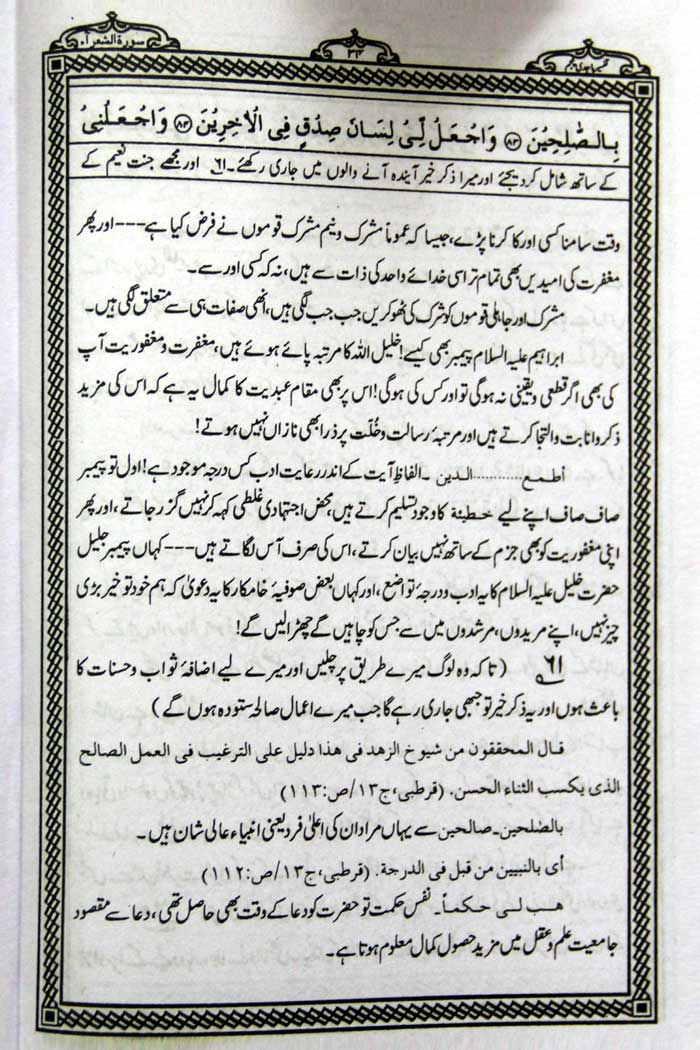 سورة الشعرآء
۳۴
بِالصّٰلِحِيْنَ ﴿۸۳﴾ وَاجْعَلْ لِّيْ لِسَانَ صِدْقٍ فِي الْاٰخِرِيْنَ ﴿۸۴﴾ وَاجْعَلْنِيْ
کے ساتھ شامل کر دیجئے اور میرا ذکر خیر آیندہ آنے والوں میں جاری رکھئے۔ ۶۱ اور مجھے جنت نعیم کے
وقت سامنا کسی اور کا کرنا پڑے، جیسا کہ عموماً مشرک و نیم مشرک قوموں نے فرض کیا ہے --- اور پھر
مغفرت کی امیدیں بھی تمام تر اسی خدائے واحد کی ذات سے ہیں، نہ کہ کسی اور سے۔
مشرک اور جاہلی قوموں کو شرک کی ٹھوکریں جب جب لگی ہیں، انھی صفات ہی سے متعلق لگی ہیں۔
ابراہیم علیہ السلام پیمبر بھی کیسے! خلیل اللہ کا مرتبہ پائے ہوئے ہیں، مغفرت و مغفوریت آپ
کی بھی اگر قطعی و یقینی نہ ہوگی تو اور کس کی ہوگی! اس پر بھی مقام عبدیت کا کمال یہ ہے کہ اس کی مزید
ذکر و انابت و التجا کرتے ہیں اور مرتبۂ رسالت و خُلّت پر ذرا بھی نازاں نہیں ہوتے!
أطمع............الدین۔ الفاظِ آیت کے اندر رعایت ادب کس درجہ موجود ہے! اول تو پیمبر
صاف صاف اپنے لیے خطیئة کا وجود تسلیم کرتے ہیں، محض اجتہادی غلطی کہہ کر نہیں گزر جاتے، اور پھر
اپنی مغفوریت کو بھی جزم کے ساتھ نہیں بیان کرتے، اس کی صرف آس لگاتے ہیں --- کہاں پیمبر جلیل
حضرت خلیل علیہ السلام کا یہ ادب و درجۂ تواضع، اور کہاں بعض صوفیۂ خامکار کا یہ دعویٰ کہ ہم خود تو خیر بڑی
چیز ہیں، اپنے مریدوں، مرشدوں میں سے جس کو چاہیں گے چھڑا لیں گے!
۶۱ (تا کہ وہ لوگ میرے طریق پر چلیں اور میرے لیے اضافۂ ثواب و حسنات کا
باعث ہوں اور یہ ذکر خیر تو جبھی جاری رہے گا جب میرے اعمال صالحہ ستودہ ہوں گے)
قال المحققون من شیوخ الزهد فی هذا دلیل علی الترغیب فی العمل الصالح
الذی یکسب الثناء الحسن. (قرطبی، ج۱۳/ص:۱۱۳)
بالصّٰلحین۔ صالحین سے یہاں مراد ان کی اعلیٰ فرد یعنی انبیاء عالی شان ہیں۔
أی بالنبیین من قبل فی الدرجة. (قرطبی، ج۱۳/ص:۱۱۲)
هب لی حکماً۔ نفس حکمت تو حضرت کو دعا کے وقت بھی حاصل تھی، دعا سے مقصود
جامعیت علم و عقل میں مزید حصول کمال معلوم ہوتا ہے۔